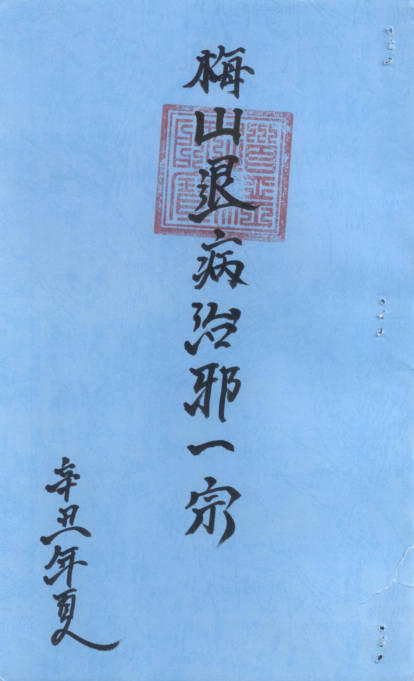 梅山退病治邪一宗
辛丑年夏